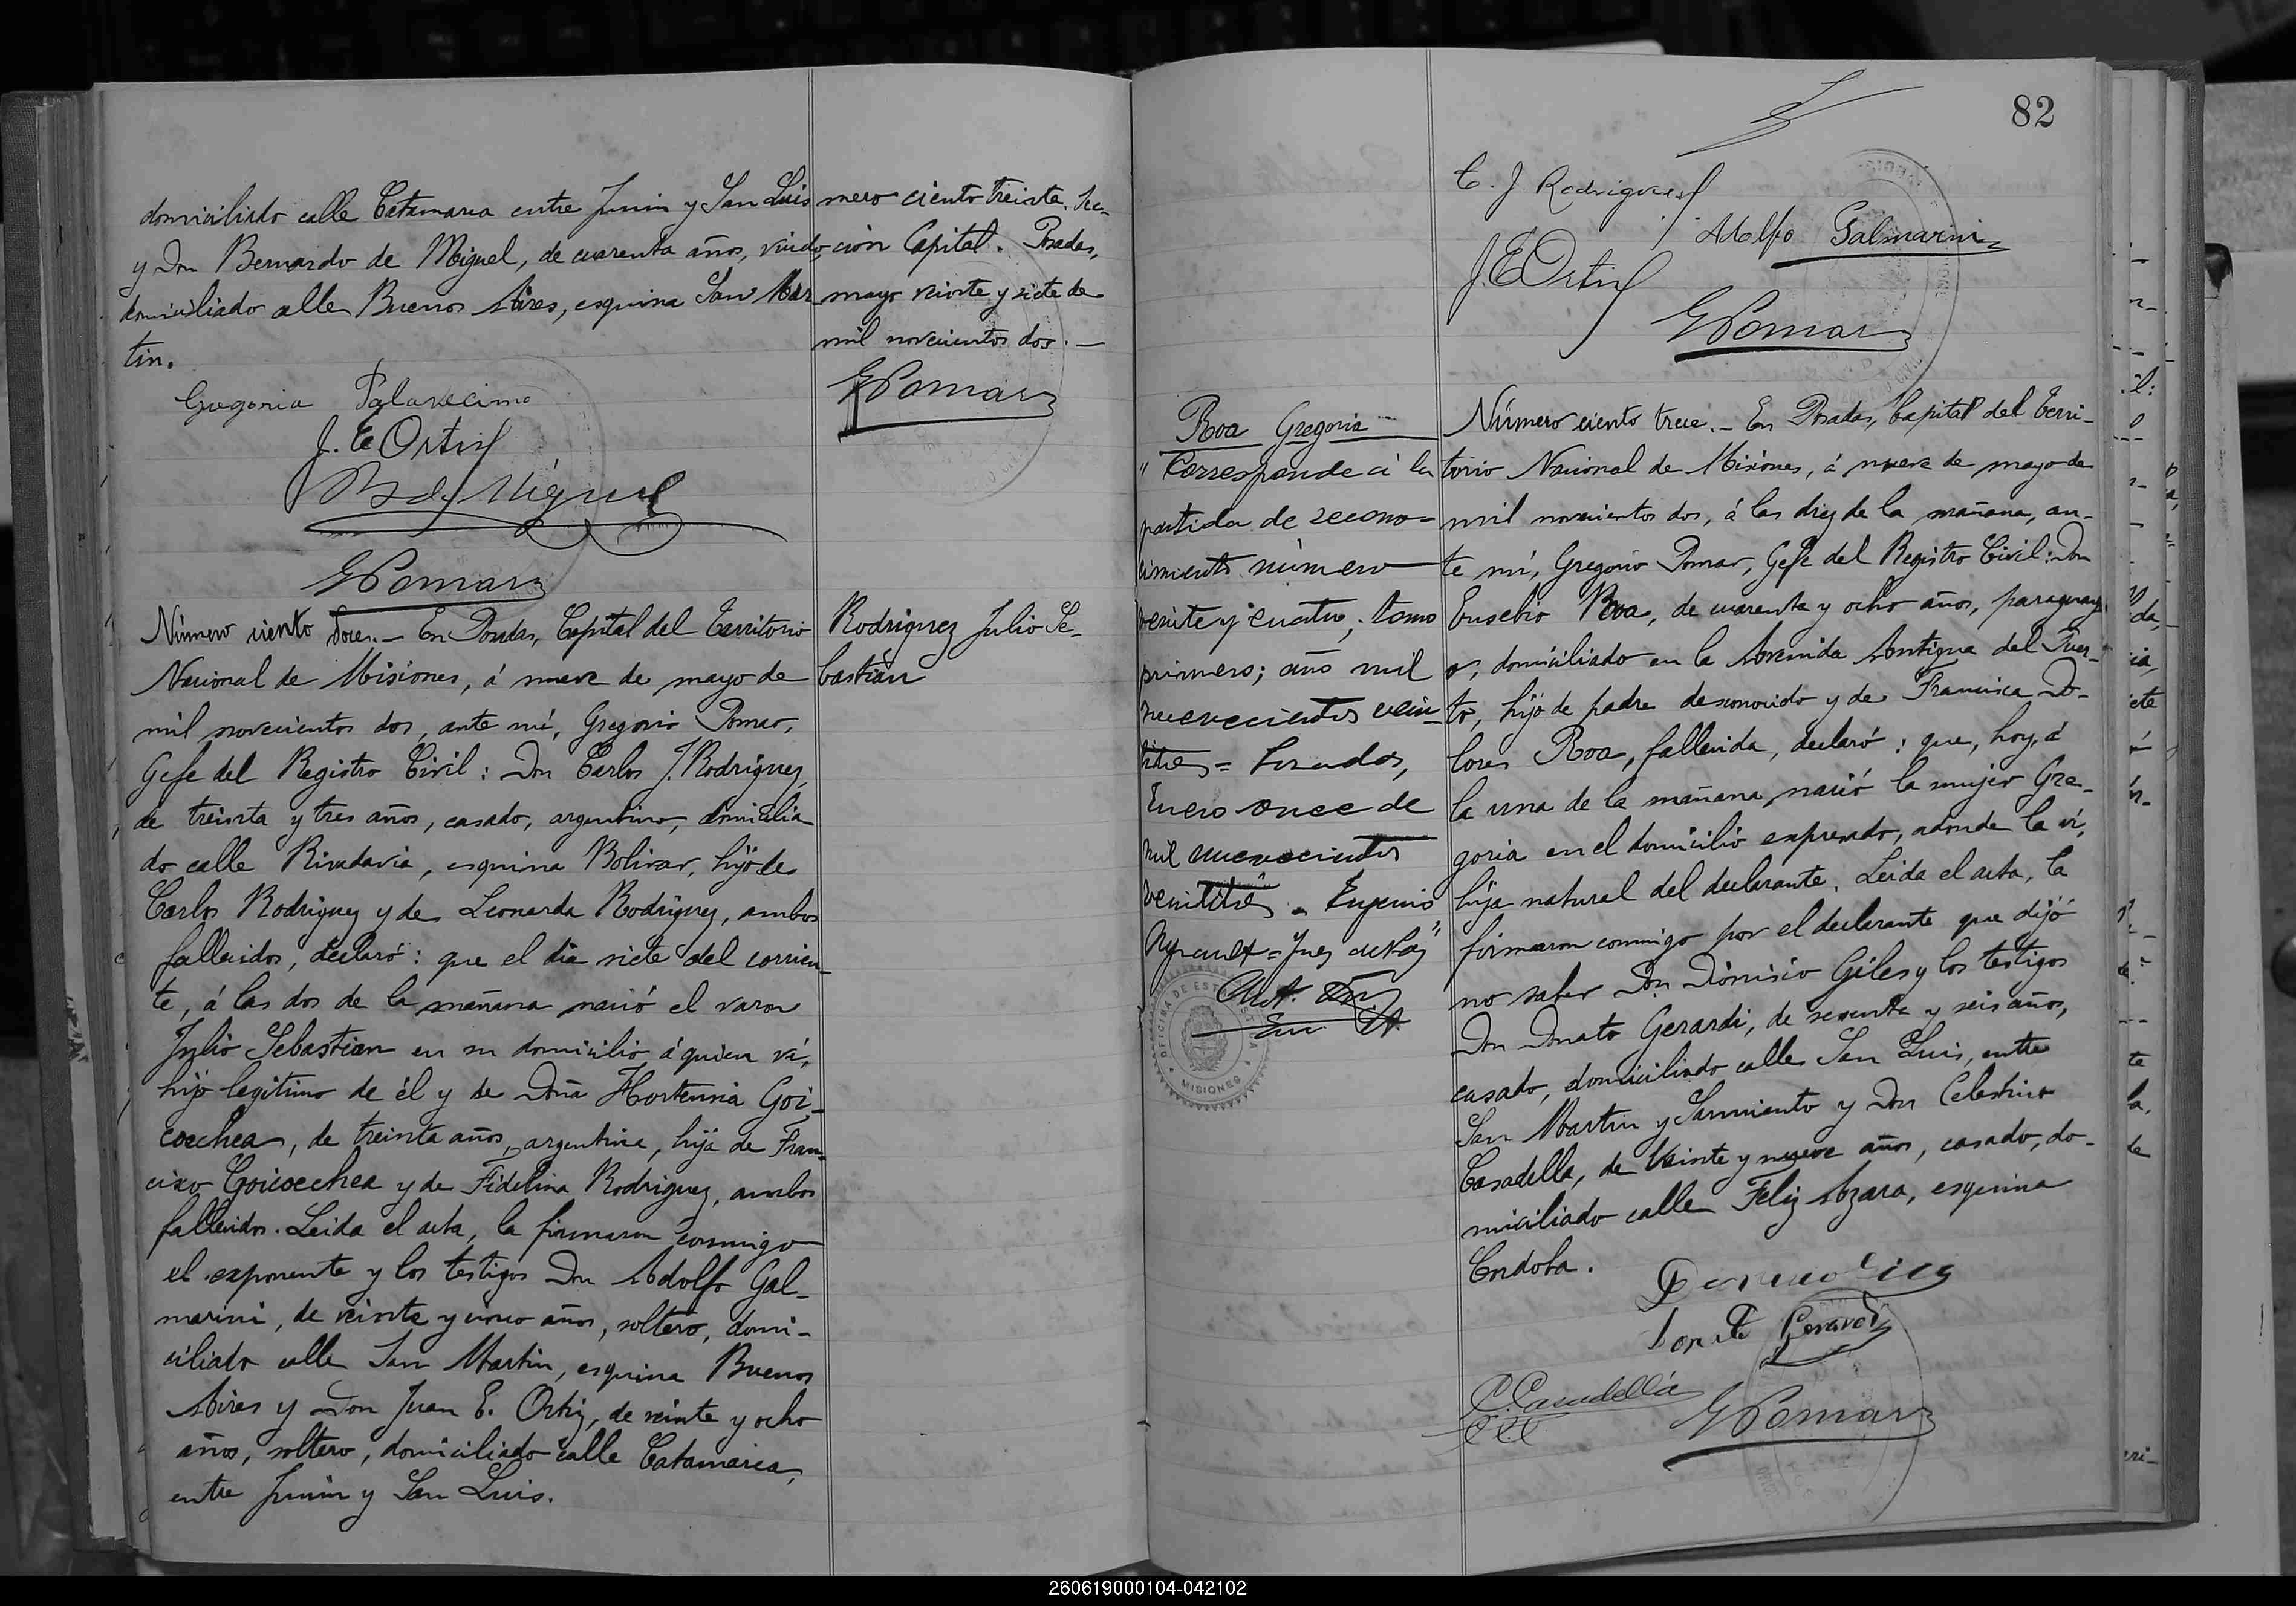 domiciliado calle Catamarca entre Junin y San Luis
y Don Bernardo de Miguel, de cuarenta años, viudo,
domiciliado calle Buenos Aires, esquina San Mar
tin.
Gregoria Palavecino
J. E Ortiz
B de Miguel
G Pomar
mero ciento treinta. Sec-
ción Capital. Posadas,
mayo veinte y siete de
mil novecientos dos. —
G Pomar
Número ciento doce. — En Posadas, Capital del Territorio
Nacional de Misiones, á nueve de mayo de
mil novecientos dos, ante mí, Gregorio Pomar,
Gefe del Registro Civil: Don Carlos J. Rodriguez,
de treinta y tres años, casado, argentino, domicilia
do calle Rivadavia, esquina Bolivar, hijo de
Carlos Rodriguez y de Leonarda Rodriguez, ambos
fallecidos, declaró: que el dia siete del corrien-
te, á las dos de la mañana nació el varon
Julio Sebastian en su domicilio á quien ví,
hijo legítimo de él y de Doña Hortensia Goi-
coechea, de treinta años, argentina, hija de Fran-
cisco Goicoechea y de Fidelina Rodriguez, ambos
fallecidos. Leida el acta, la firmaron conmigo
el exponente y los testigos Don Adolfo Gal-
marini, de veinte y cinco años, soltero, domi-
ciliado calle San Martin, esquina Buenos
Aires y Don Juan E. Ortiz, de veinte y ocho
años, soltero, domiciliado calle Catamarca,
entre Junin y San Luis.
Rodriguez Julio Se-
bastián
82
C. J Rodriguez
Adolfo Galmarini
J. E Ortiz
G Pomar
Roa Gregoria
" Corresponde á la
partida de recono-
cimiento número
veinte y cuatro, tomo
primero; año mil
nuevecientos vein-
titres = Posadas,
Enero once de
mil nuevecientos
veintitrés = Eugenio
= Juez de Paz"
OFICINA DE
MISIONES
Número ciento trece. — En Posadas, Capital del Terri-
torio Nacional de Misiones, á nueve de mayo de
mil novecientos dos, á las diez de la mañana, an-
te mí, Gregorio Pomar, Gefe del Registro Civil: Don
Eusebio Roa, de cuarenta y ocho años, paraguay
o, domiciliado en la Avenida Antigua del Puer-
to, hijo de padre desconocido y de Francisca Do-
lores Roa, fallecida, declaró: que, hoy, á
la una de la mañana, nació la mujer Gre-
goria en el domicilio expresado, adonde la ví,
hija natural del declarante. Leida el acta, la
firmaron conmigo por el declarante que dijó
no saber Don Dionisio Giles y los testigos
Don Donato Gerardi, de sesenta y seis años,
casado, domiciliado calle San Luis, entre
San Martin y Sarmiento y Don Celestino
Casadella, de veinte y nueve años, casado, do-
miciliado calle Feliz Azara, esquina
Cordoba.
C. Casadella
G Pomar
260619000104-042102